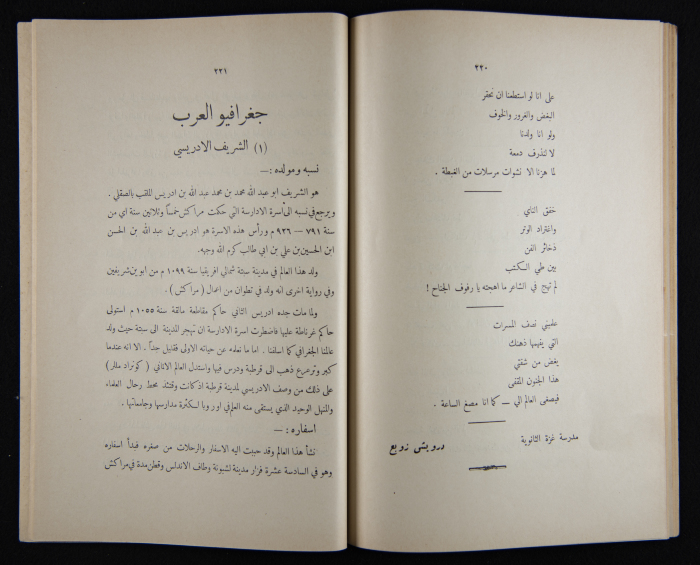 ٢٢٠
على انا لو استطعنا ان نحقر
البغض والغرور والخوف
ولو انا ولدنا
لا لنذرف دمعة
لما هزنا الا نشوات مرسلات من الغبطة .
خفق الناي
واغتراد الوتر
ذخائر الفن
بين طي الكتب
لم تهج في الشاعر ما اهجته يا رفوف الجناح !
علميني نصف المسرات
التي يفهمها ذهنك
بغض من شفتي
هذا الجنون المقفى
فيصغى العالم الي — كما انا مصغ الساعة .
مدرسة غزة الثانوية
درويش زويع
٢٢١
جغرافيو العرب
(١) الشريف الادريسي
نسبه ومولده :—
هو الشريف ابو عبد الله محمد بن محمد عبد الله بن ادريس الملقب بالصقلي .
ويرجع في نسبه الى أسرة الادارسة التي حكت مراكش خمساً وثلاثين سنة اي من
سنة ٧٩١ — ٩٢٦ م ورأس هذه الاسرة هو ادريس بن عبد الله بن الحسن
ابن الحسين بن علي بن ابي طالب كرم الله وجهه .
ولد هذا العالم في مدينة سبتة شمالي افريقيا سنة ١٠٩٩ م من ابوين شريفين
وفي رواية اخرى انه ولد في تطوان من اعمال ( مراكش ) .
ولما مات جده ادريس الثاني حاكم مقاطعة مالقة سنة ١٠٥٥ م استولى
حاكم غرناطة عليها فاضطرت اسرة الادارسة ان تهجر المدينة الى سبتة حيث ولد
عالمنا الجغرافي كما اسلفنا . اما ما نعلمه عن حياته الاولى فقليل جداً . الا انه عندما
كبر وترعرع ذهب الى قرطبة ودرس فيها واستدل العالم الالماني ( كونراد مللر )
على ذلك من وصف الادريسي لمدينة قرطبة اذ كانت وقتئذ محط رحال العلماء
والمنهل الوحيد الذي يستقى منه العلم في اوروبا لكثرة مدارسها وجامعاتها .
اسفاره :—
نشأ هذا العالم وقد حببت اليه الاسفار والرحلات من صغره فبدأ اسفاره
وهو في السادسة عشرة فزار مدينة لشبونة وطاف الاندلس وقطن مدة في مراكش